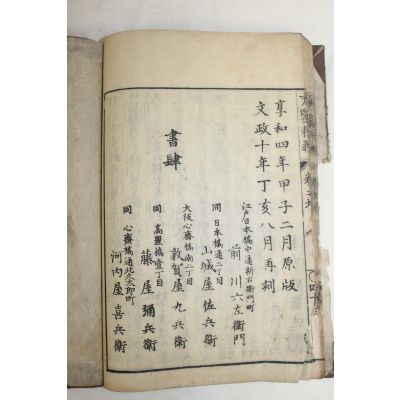 享和四年甲子二月原版
文政十年丁亥八月再刻
書肆
江戸日本橋中通新右衛門町
前川六左衛門
同 日本橋通二丁目
山城屋佐兵衛
大阪心齋橋南二丁目
敦賀屋九兵衛
同 高麗橋壹丁目
藤屋彌兵衛
同 心齋橋通北久太郎町
河内屋喜兵衛